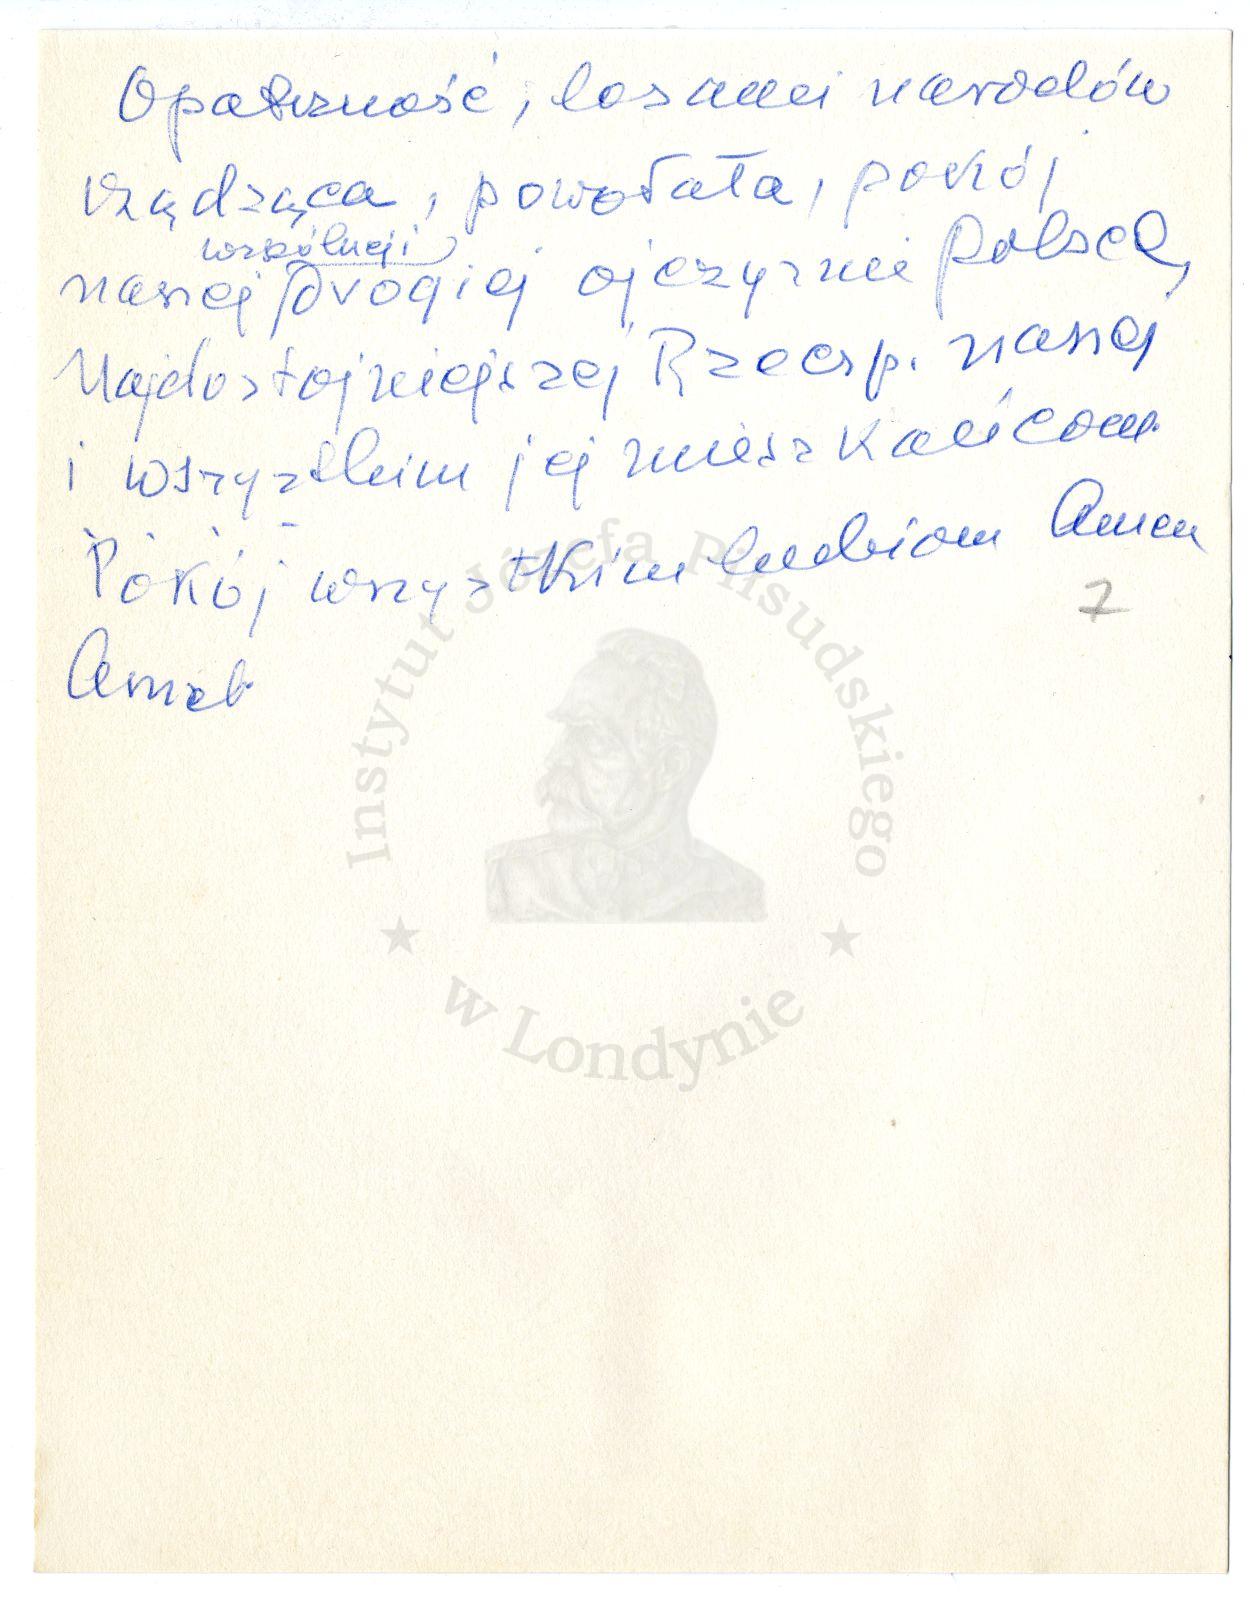 Opatrzność, losami narodów
rządząca, powołała, pokój
wspólnej
naszej drogiej ojczyźnie Polsce,
Najdostojniejszej Rzeczp. naszej
i wszystkim jej mieszkańcom
Pokój wszystkim ludziom Amen
7
Amen
Instytut Józefa Piłsudskiego
w Londynie